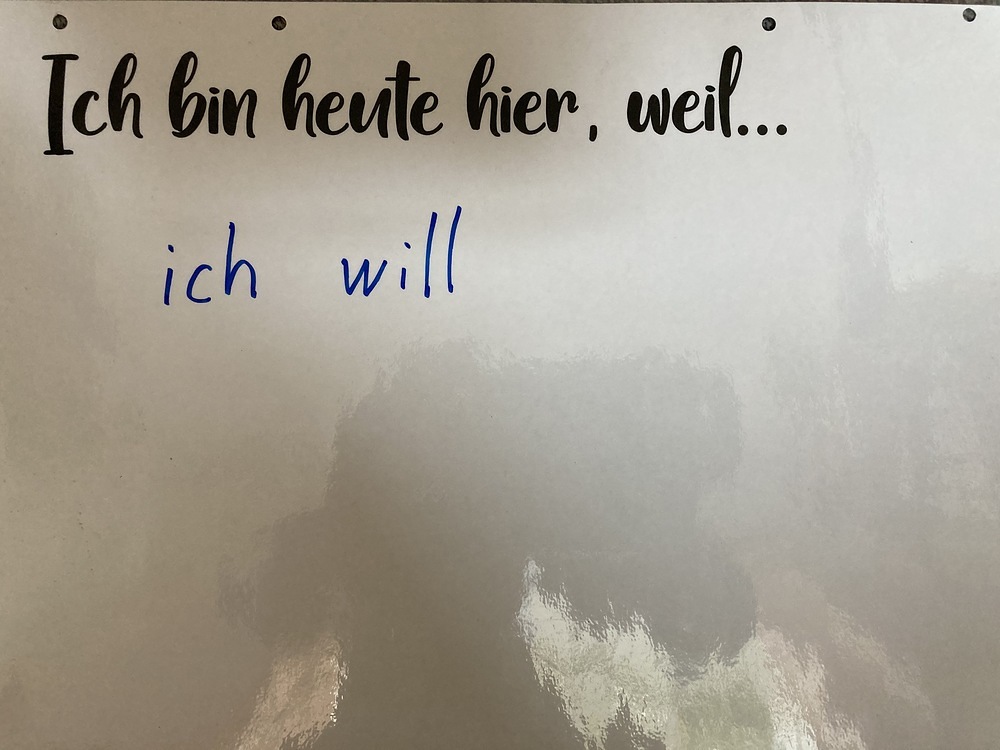 Ich bin heute hier, weil...
ich will